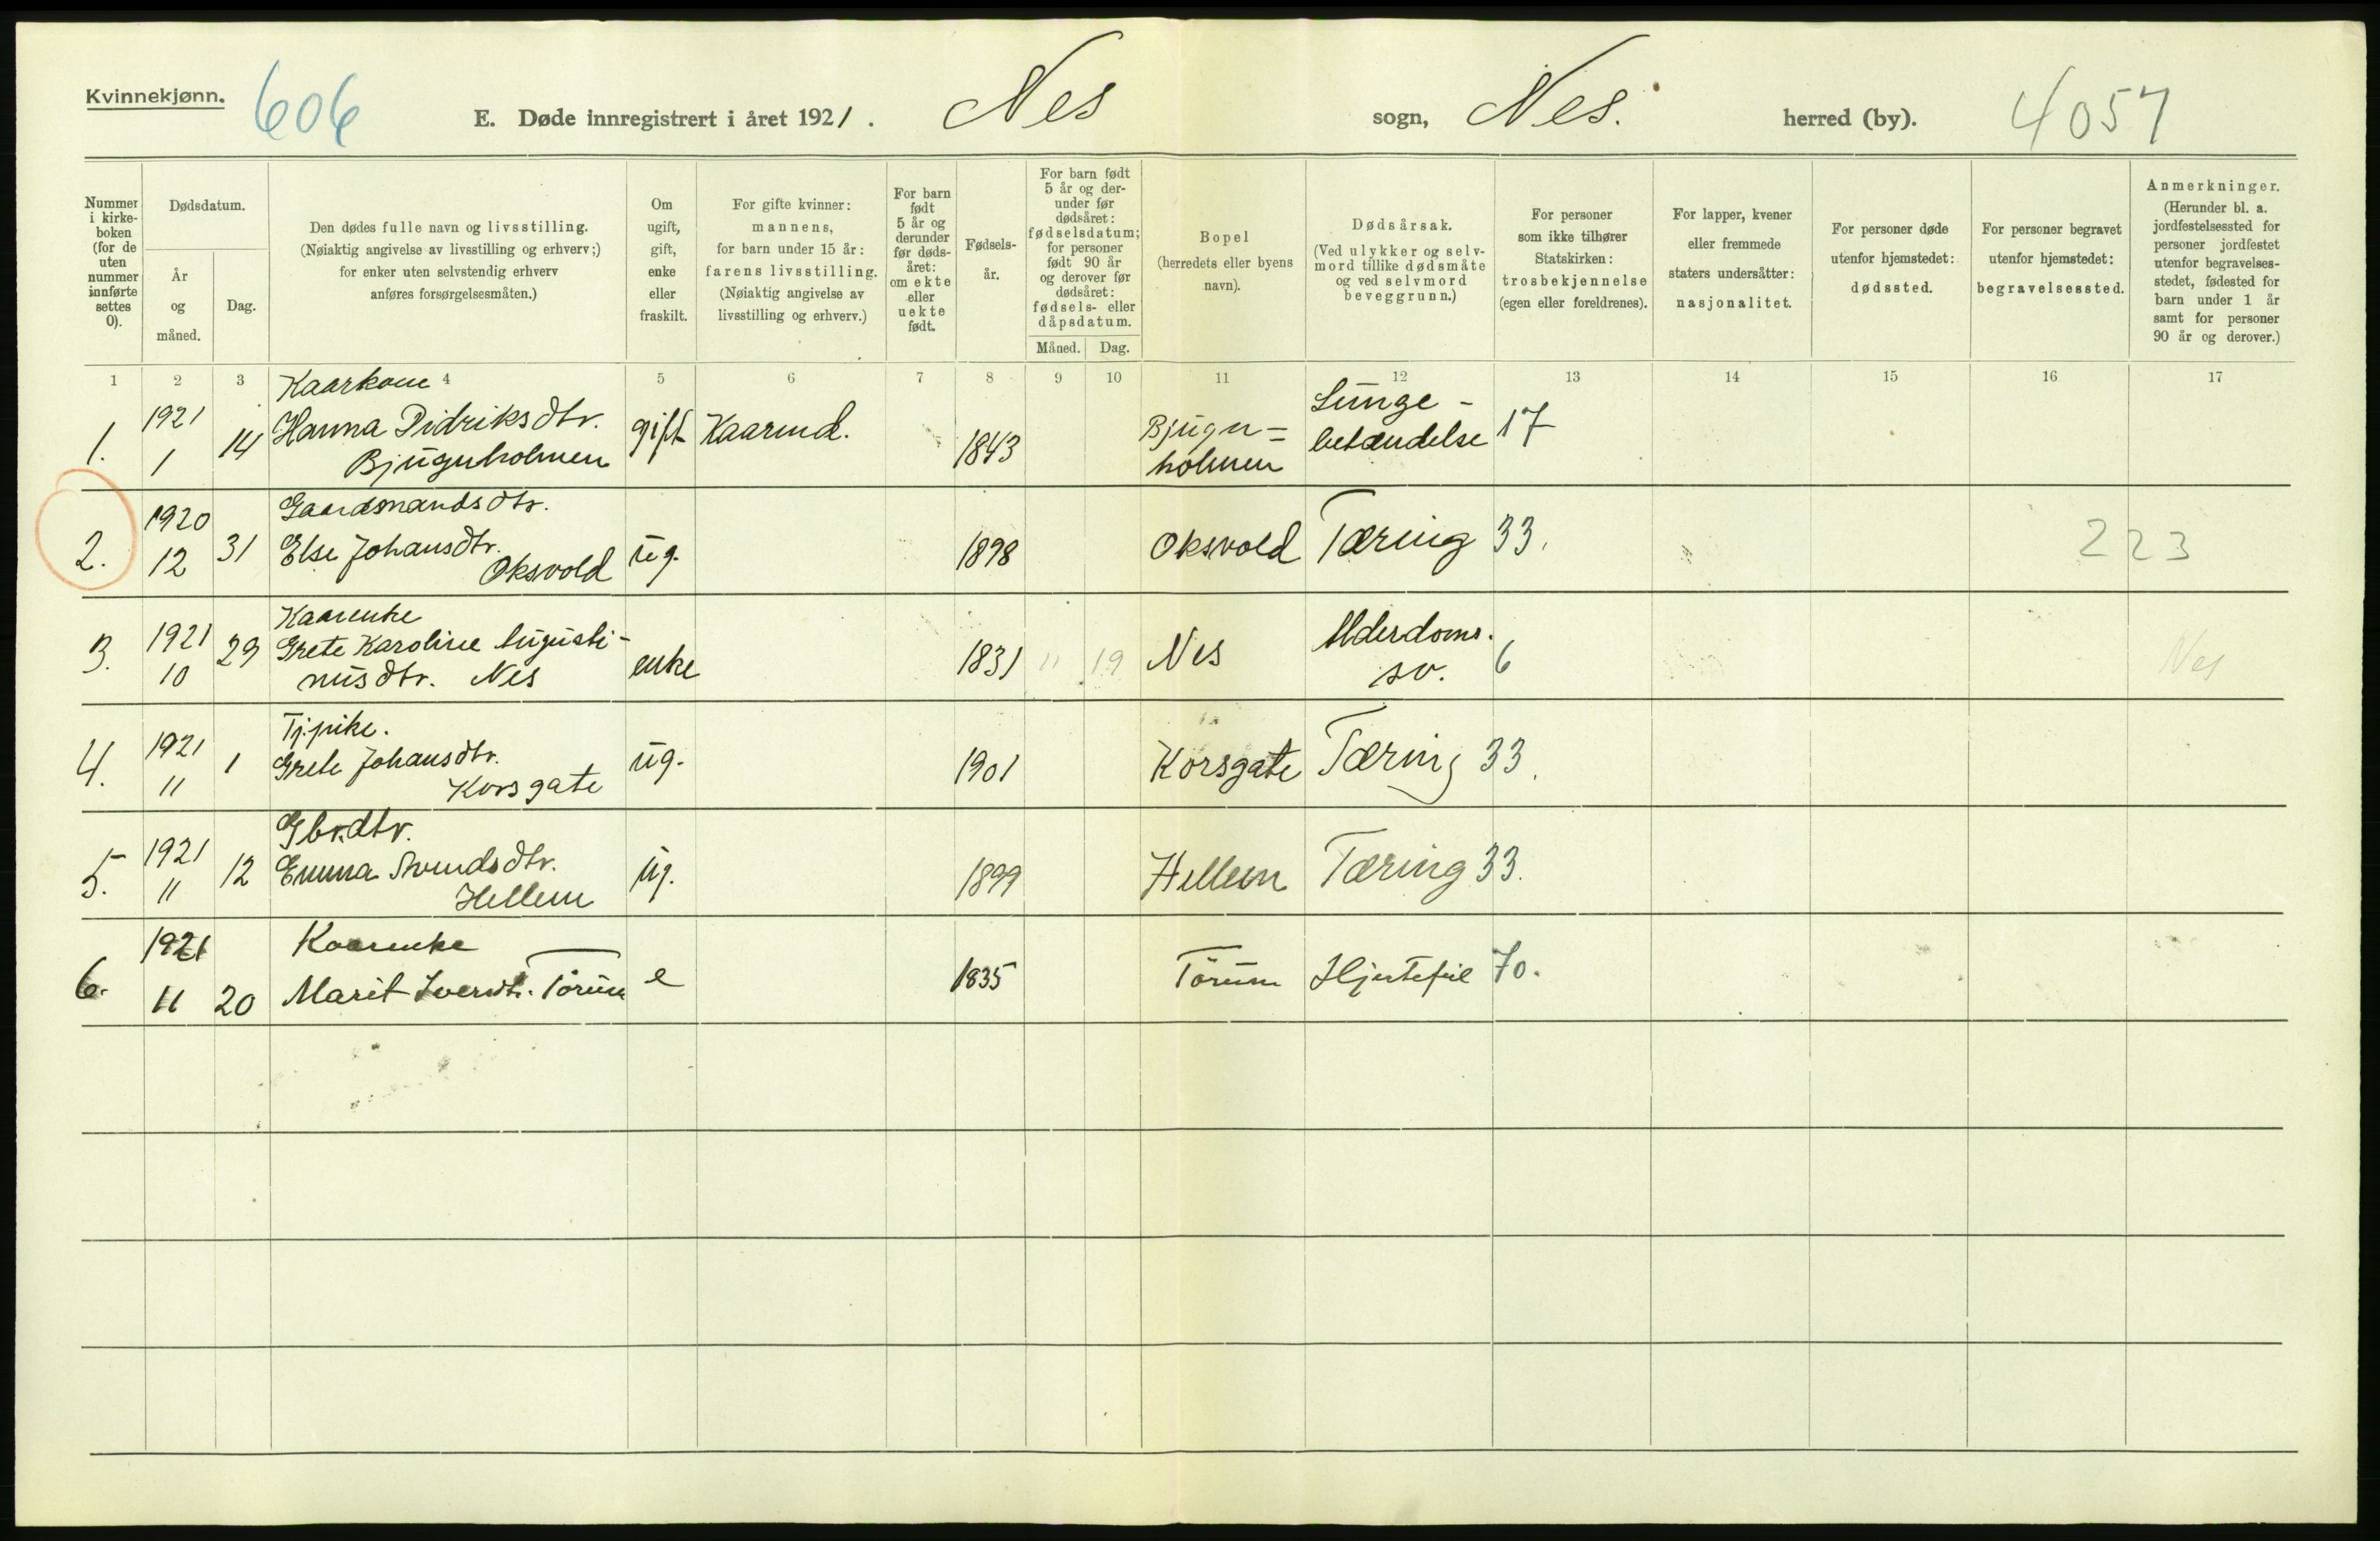 Kvinnekjønn.
606
E. Døde innregistrert i året 1921.
Nes sogn, Nes. herred (by).
4057
Nummer i kirkeboken (for de uten nummer innførte settes 0).
Dødsdatum.
År og måned.
Dag.
Den dødes fulle navn og livsstilling.
(Nøiaktig angivelse av livsstilling og erhverv;)
for enker uten selvstendig erhverv
anføres forsørgelsesmåten.)
Om ugift, gift, enke eller fraskilt.
For gifte kvinner:
mannens,
for barn under 15 år:
farens livsstilling.
(Nøiaktig angivelse av
livsstilling og erhverv.)
For barn født 5 år og derunder før dødsåret: om ekte eller uekte født.
Fødselsår.
For barn født 5 år og derunder før dødsåret: fødselsdatum; for personer født 90 år og derover før dødsåret: fødsels- eller dåpsdatum.
Måned. Dag.
Bopel
(herredets eller byens
navn).
Dødsårsak.
(Ved ulykker og selvmord tillike dødsmåte og ved selvmord beveggrunn.)
For personer
som ikke tilhører
Statskirken:
trosbekjennelse
(egen eller foreldrenes).
For lapper, kvener
eller fremmede
staters undersåtter:
nasjonalitet.
For personer døde
utenfor hjemstedet:
dødssted.
For personer begravet
utenfor hjemstedet:
begravelsessted.
Anmerkninger.
(Herunder bl. a.
jordfestelsessted for
personer jordfestet
utenfor begravelses-
stedet, fødested for
barn under 1 år
samt for personer
90 år og derover.)
1 2 3 4 5 6 7 8 9 10 11 12 13 14 15 16 17
1. 1921 1 14
Kaarkone
Hanna Didriksdtr.
Bjugnholmen
gift Kaarmd. 1843
Bjugn=
holmen
Lunge-
betændelse 17
2. 1920 12 31
Gaardsmandsdtr.
Else Johansdtr.
Oksvold
ug. 1898 Oksvold Tæring 33. 223
3. 1921 10 29
Kaarenke
Grete Karoline Augusti-
nusdtr. Nes
enke 1831 11 19 Nes
Alderdoms.
sv. 6 Nes
4. 1921 11 1
Tj.pike.
Grete Johansdtr.
Korsgate
ug. 1901 Korsgate Tæring 33.
5. 1921 11 12
Gbr.dtr.
Emma Svendsdtr.
Hellem
ug. 1899 Hellem Tæring 33.
6. 1921 11 20
Kaarenke
Marit Iversdt. Tørum
e 1835 Tørum Hjertefeil 70.